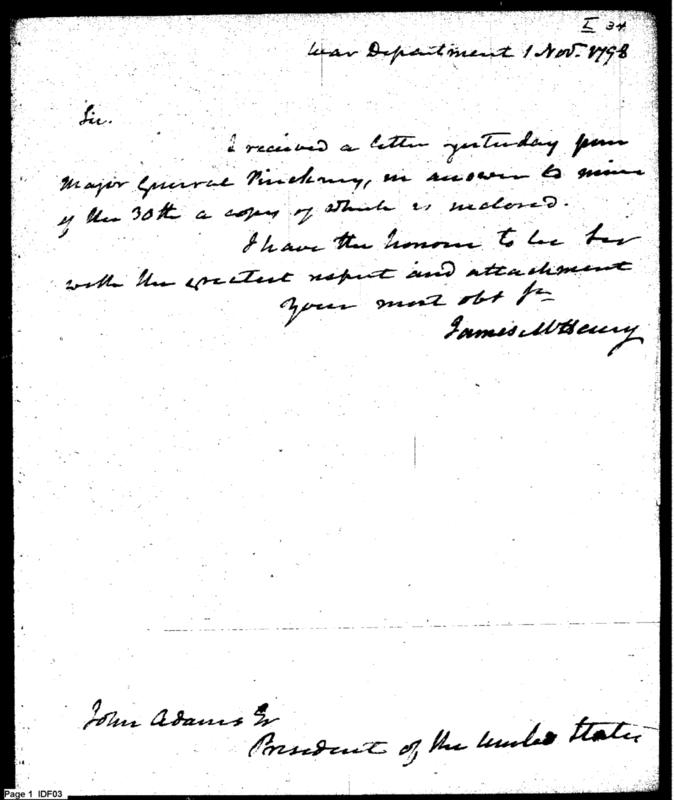 I 34
War Department 1 Nov. 1798
Sir.
I received a letter yesterday from
Major General Pinckney, in answer to mine
of the 30th a copy of which is inclosed.
I have the honour to be Sir
with the greatest respect and attachment
Your most obt
James McHenry
John Adams Esr
President of the United States
Page 1 IDF03